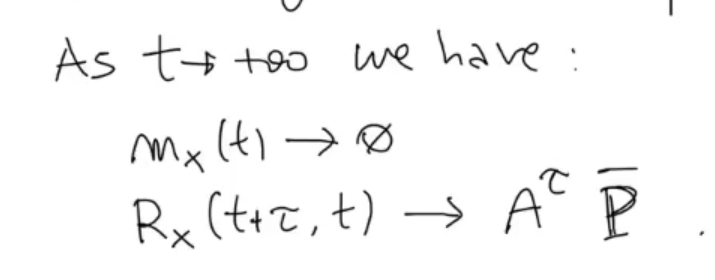 As t→ +∞ we have :
mₓ(t) → ∅
Rₓ(t+τ, t) → A^τ P̅ .